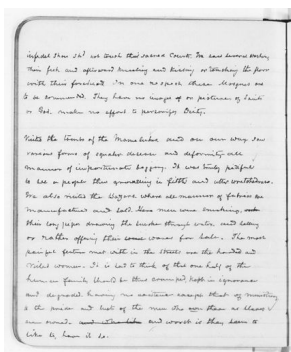 infidel shoes sh'd not touch that sacred Court. We saw several washing
their feet and afterward kneeling and kissing or touching the floor
with their forehead. In one respect these Mosques are
to be commended. They have no images of or pictures of Saints
or God. make no effort to personify Deity.
Visited the tombs of the Mamelukes and on our way saw
various forms of squalor disease and deformity all
manner of importunate begging. It was truly painful
to see a people thus grovelling in filth and utter wretchedness.
We also visited the Bazaars where all manner of fabrics are
manufactured and sold. Some men were smoking,
their long pipes drawing the smoke through water, and selling
or rather offering their wares for sale. The most
painful feature met with in the streets are the hooded and
veiled women. It is sad to think of that one half of the
human family should be thus kept in ignorance
and degraded having no existence except that of ministering
to the power and lust of the men who own them as slaves
are owned. and worst is they seem to
like to have it so.